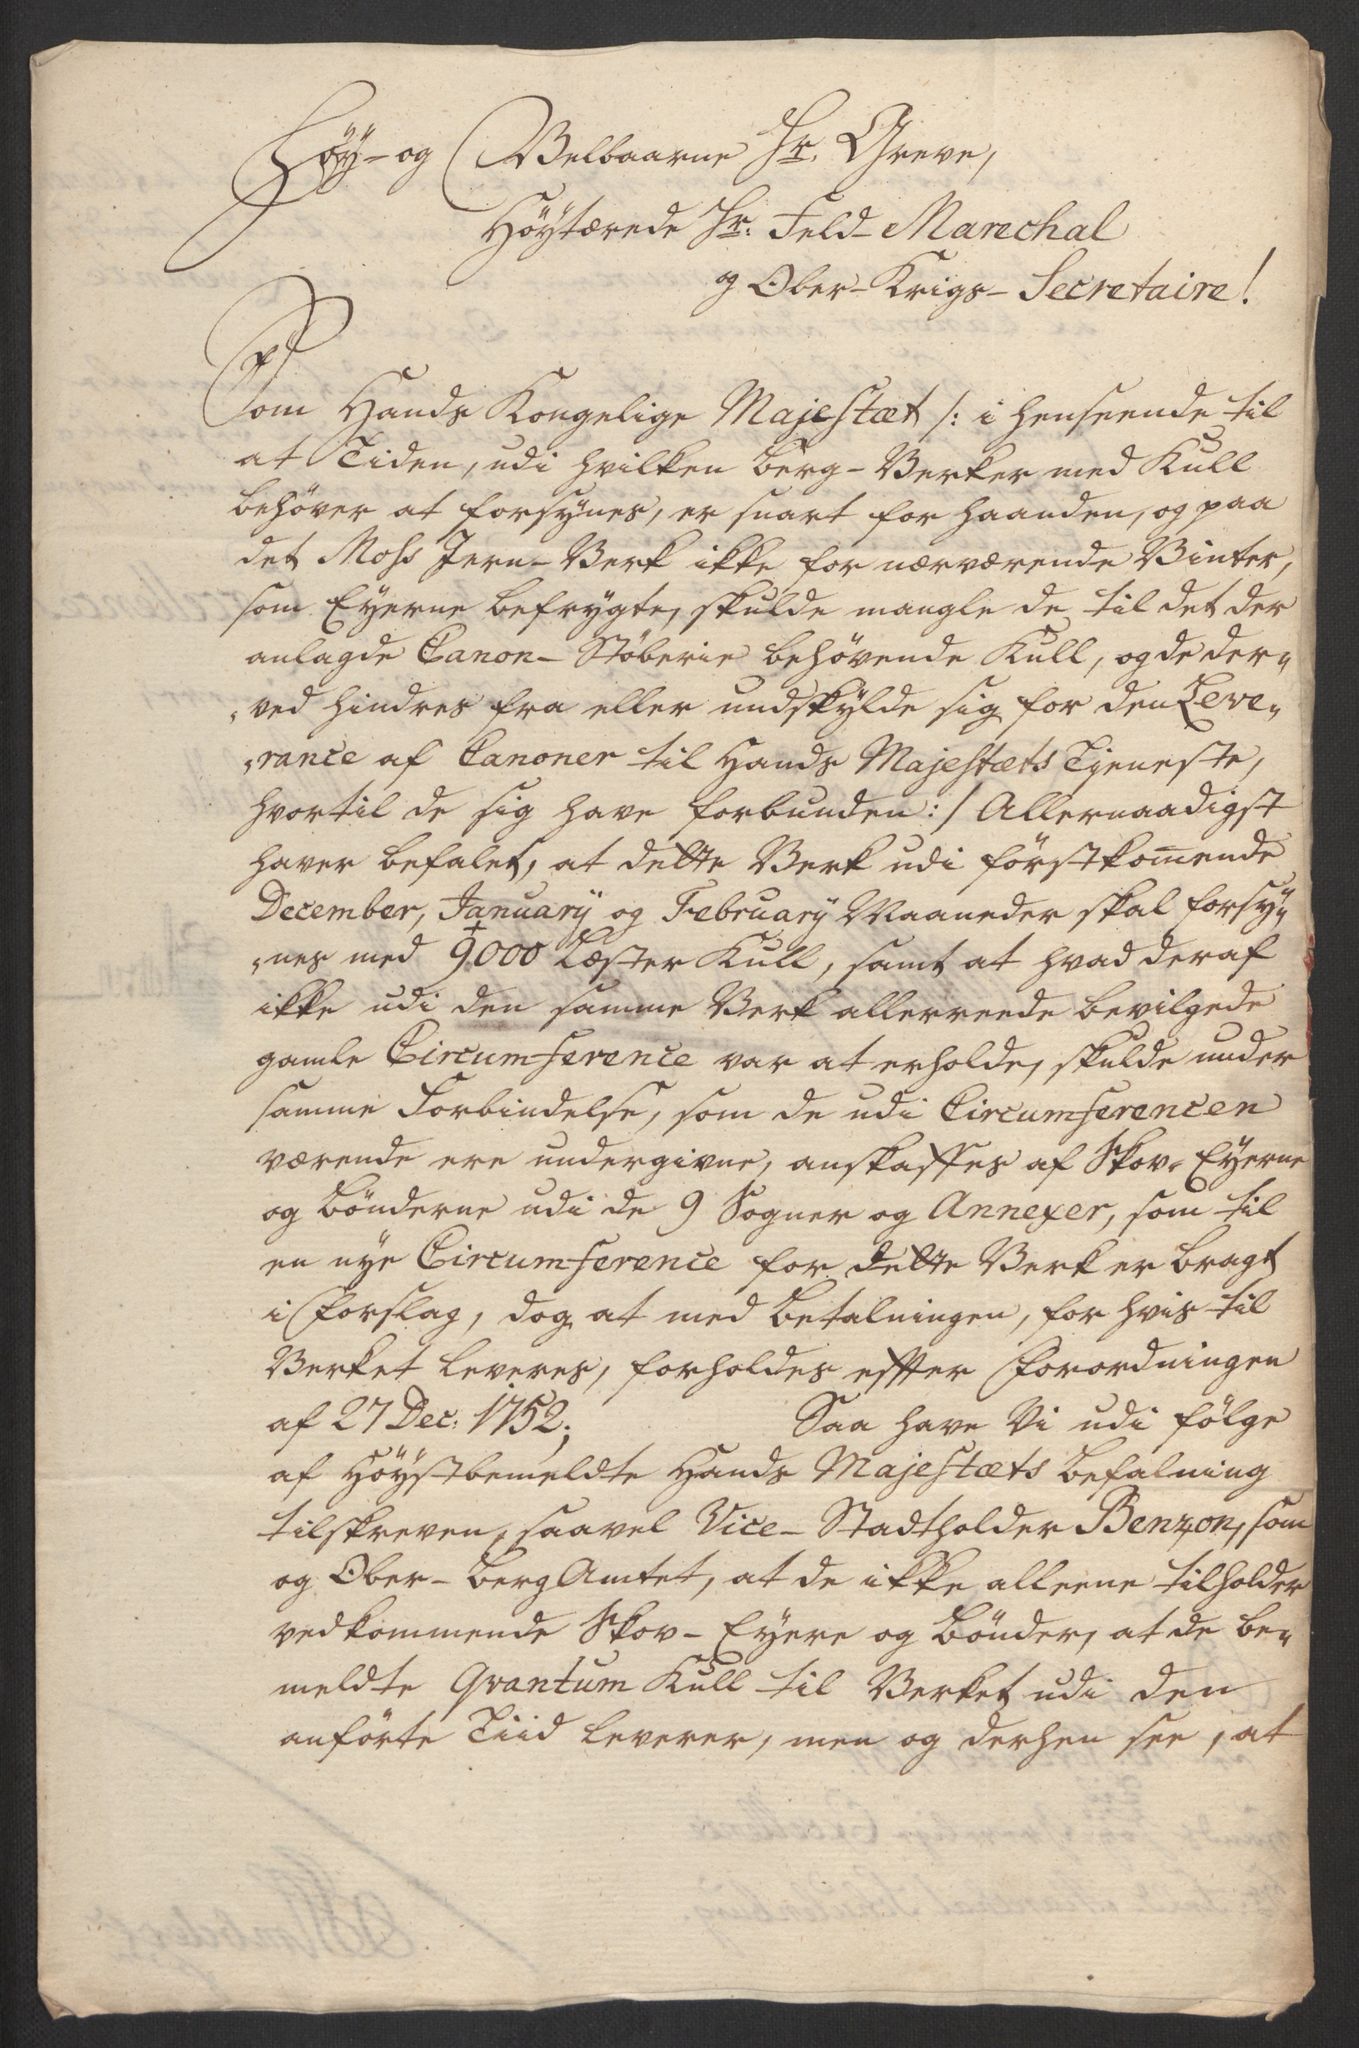 Høy- og Velbaarne Hr. Greve,
Høytærede Hr: Feld-Marechal
og Ober-Krigs-Secretaire!
Som Hands Kongelige Majestæt /: i henseende til
at Tiden, udi hvilken Berg-Verker med Kull
behöver at forsynes, er snart for haanden, og paa
det Mohs Jern-Verk ikke for nærværende Vinter,
som Eyerne befrygte, skulde mangle de til det der
anlagde Canon-Støberie behövende Kull, og de der„
„ved hindres fra eller undskylde sig for den Leve„
„rance af Canoner til Hands Majestæts Tjeneste,
hvortil de sig have forbunden :/ Allernaadigst
haver befalet, at dette Verk udi förstkom̅ende
December, Januarÿ og Februarÿ Maaneder skal forsy„
„nes med 9000 Læster Kull, samt at hvad deraf
ikke udi den samme Verk allerreede bevilgede
gamle Circumference var at erholde, skulde under
samme Forbindelse, som de udi Circumferencen
værende ere undergivne, anskaffes af Skov-Eyerne
og Bönderne udi de 9 Sogner og Annexer, som til
en nye Circumference for dette Verk er bragt
i Forslag, dog at med Betalningen, for hvis til
Verket leveres, forholdes effter Forordningen
af 27 Dec: 1752; Saa have Vi udi fölge
af Höystbemeldte Hands Majestæts Befalning
tilskreven, saavel Vice-Stadtholder Benzon, som
og Ober-Berg Amtet, at de ikke alleene tilholder
vedkommende Skov-Eyere og Bönder, at de be„
meldte Qvantum Kull til Verket udi den
anförte Tiid leverer, men og derhen see, at